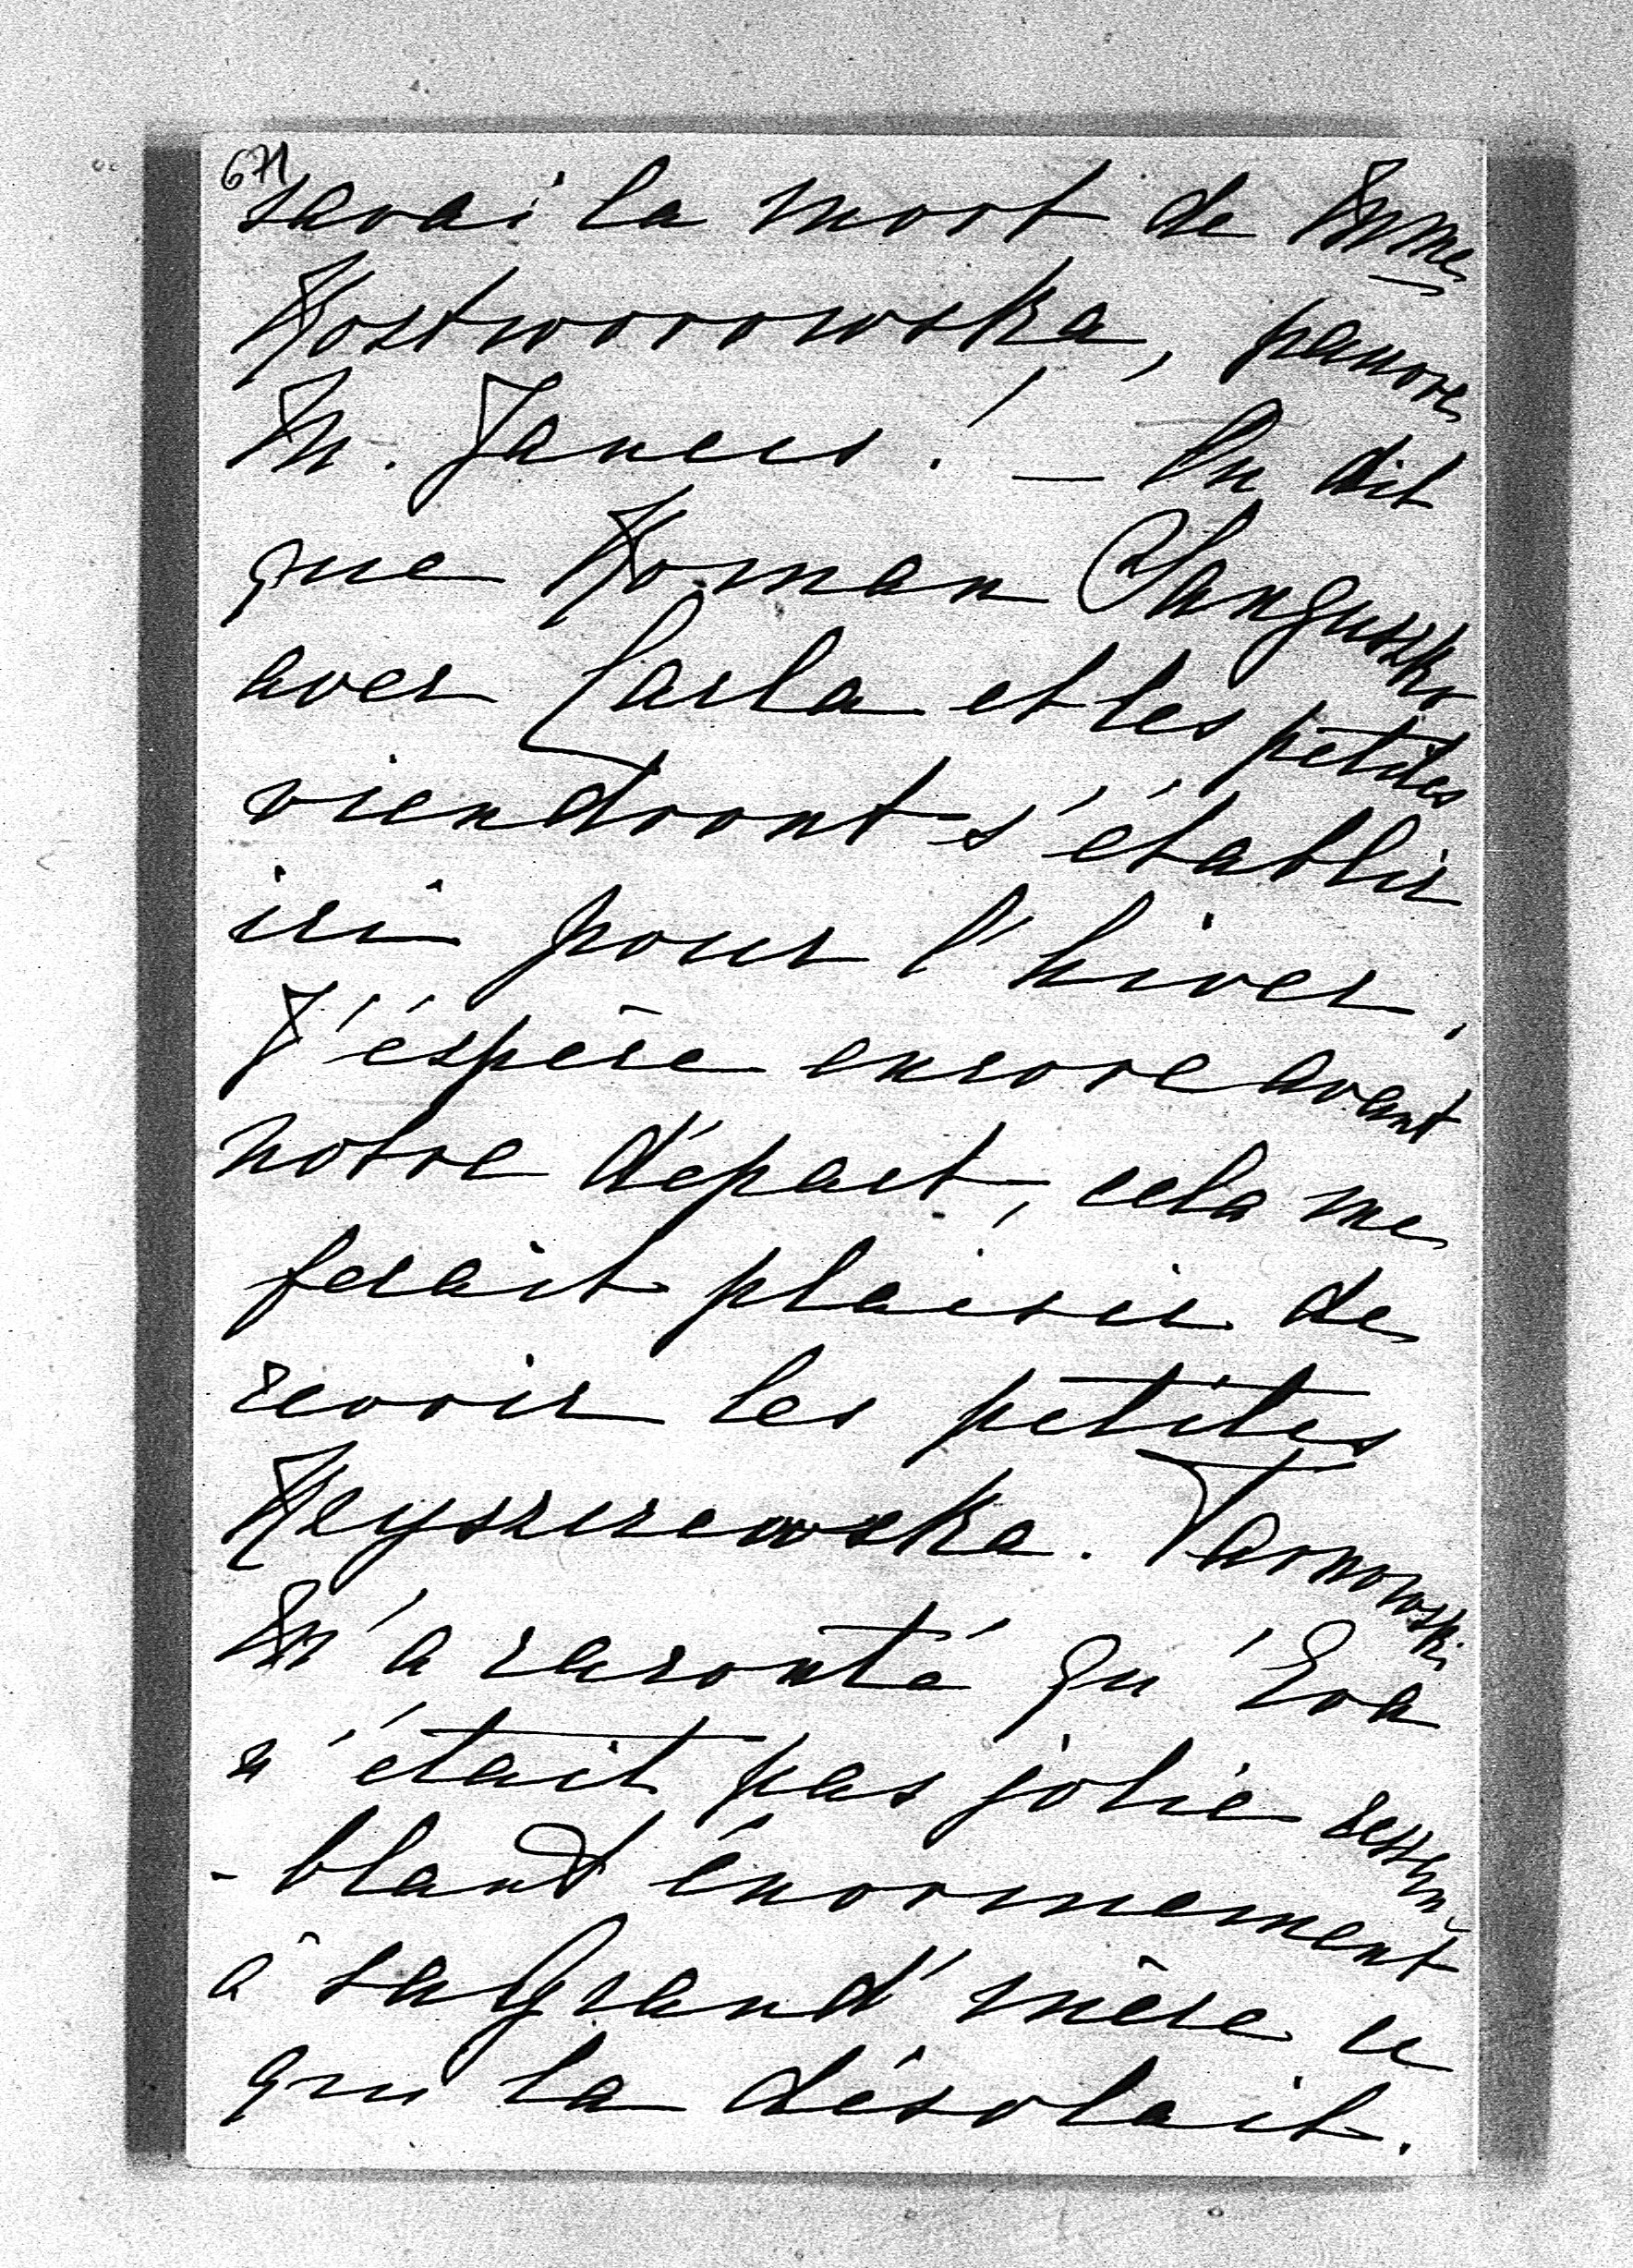 671
savai la mort de Mme
Kostworowska, pauvre
M. Janees! — On dit
que Roman Sanguszko
avec Carla et les petites
viendront s'établir
ici pour l'hiver.
J'éspère encore avant
notre départ, cela me
ferait plaisir de
revoir les petites
Keyszerewska. Tarnowski
M'a raconté qu'Eva
n'était pas jolie ressem
-blant énormement
à sa Grand'mère ce
qui la désolait.